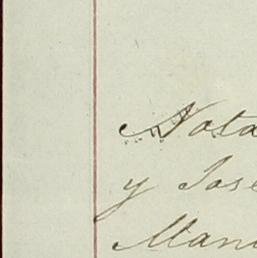 Nota
y Jose
Manu